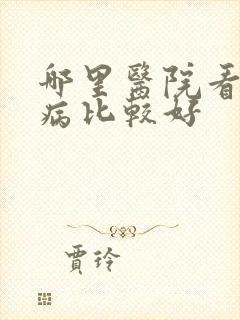 哪里醫院看
病比較好
賈玲